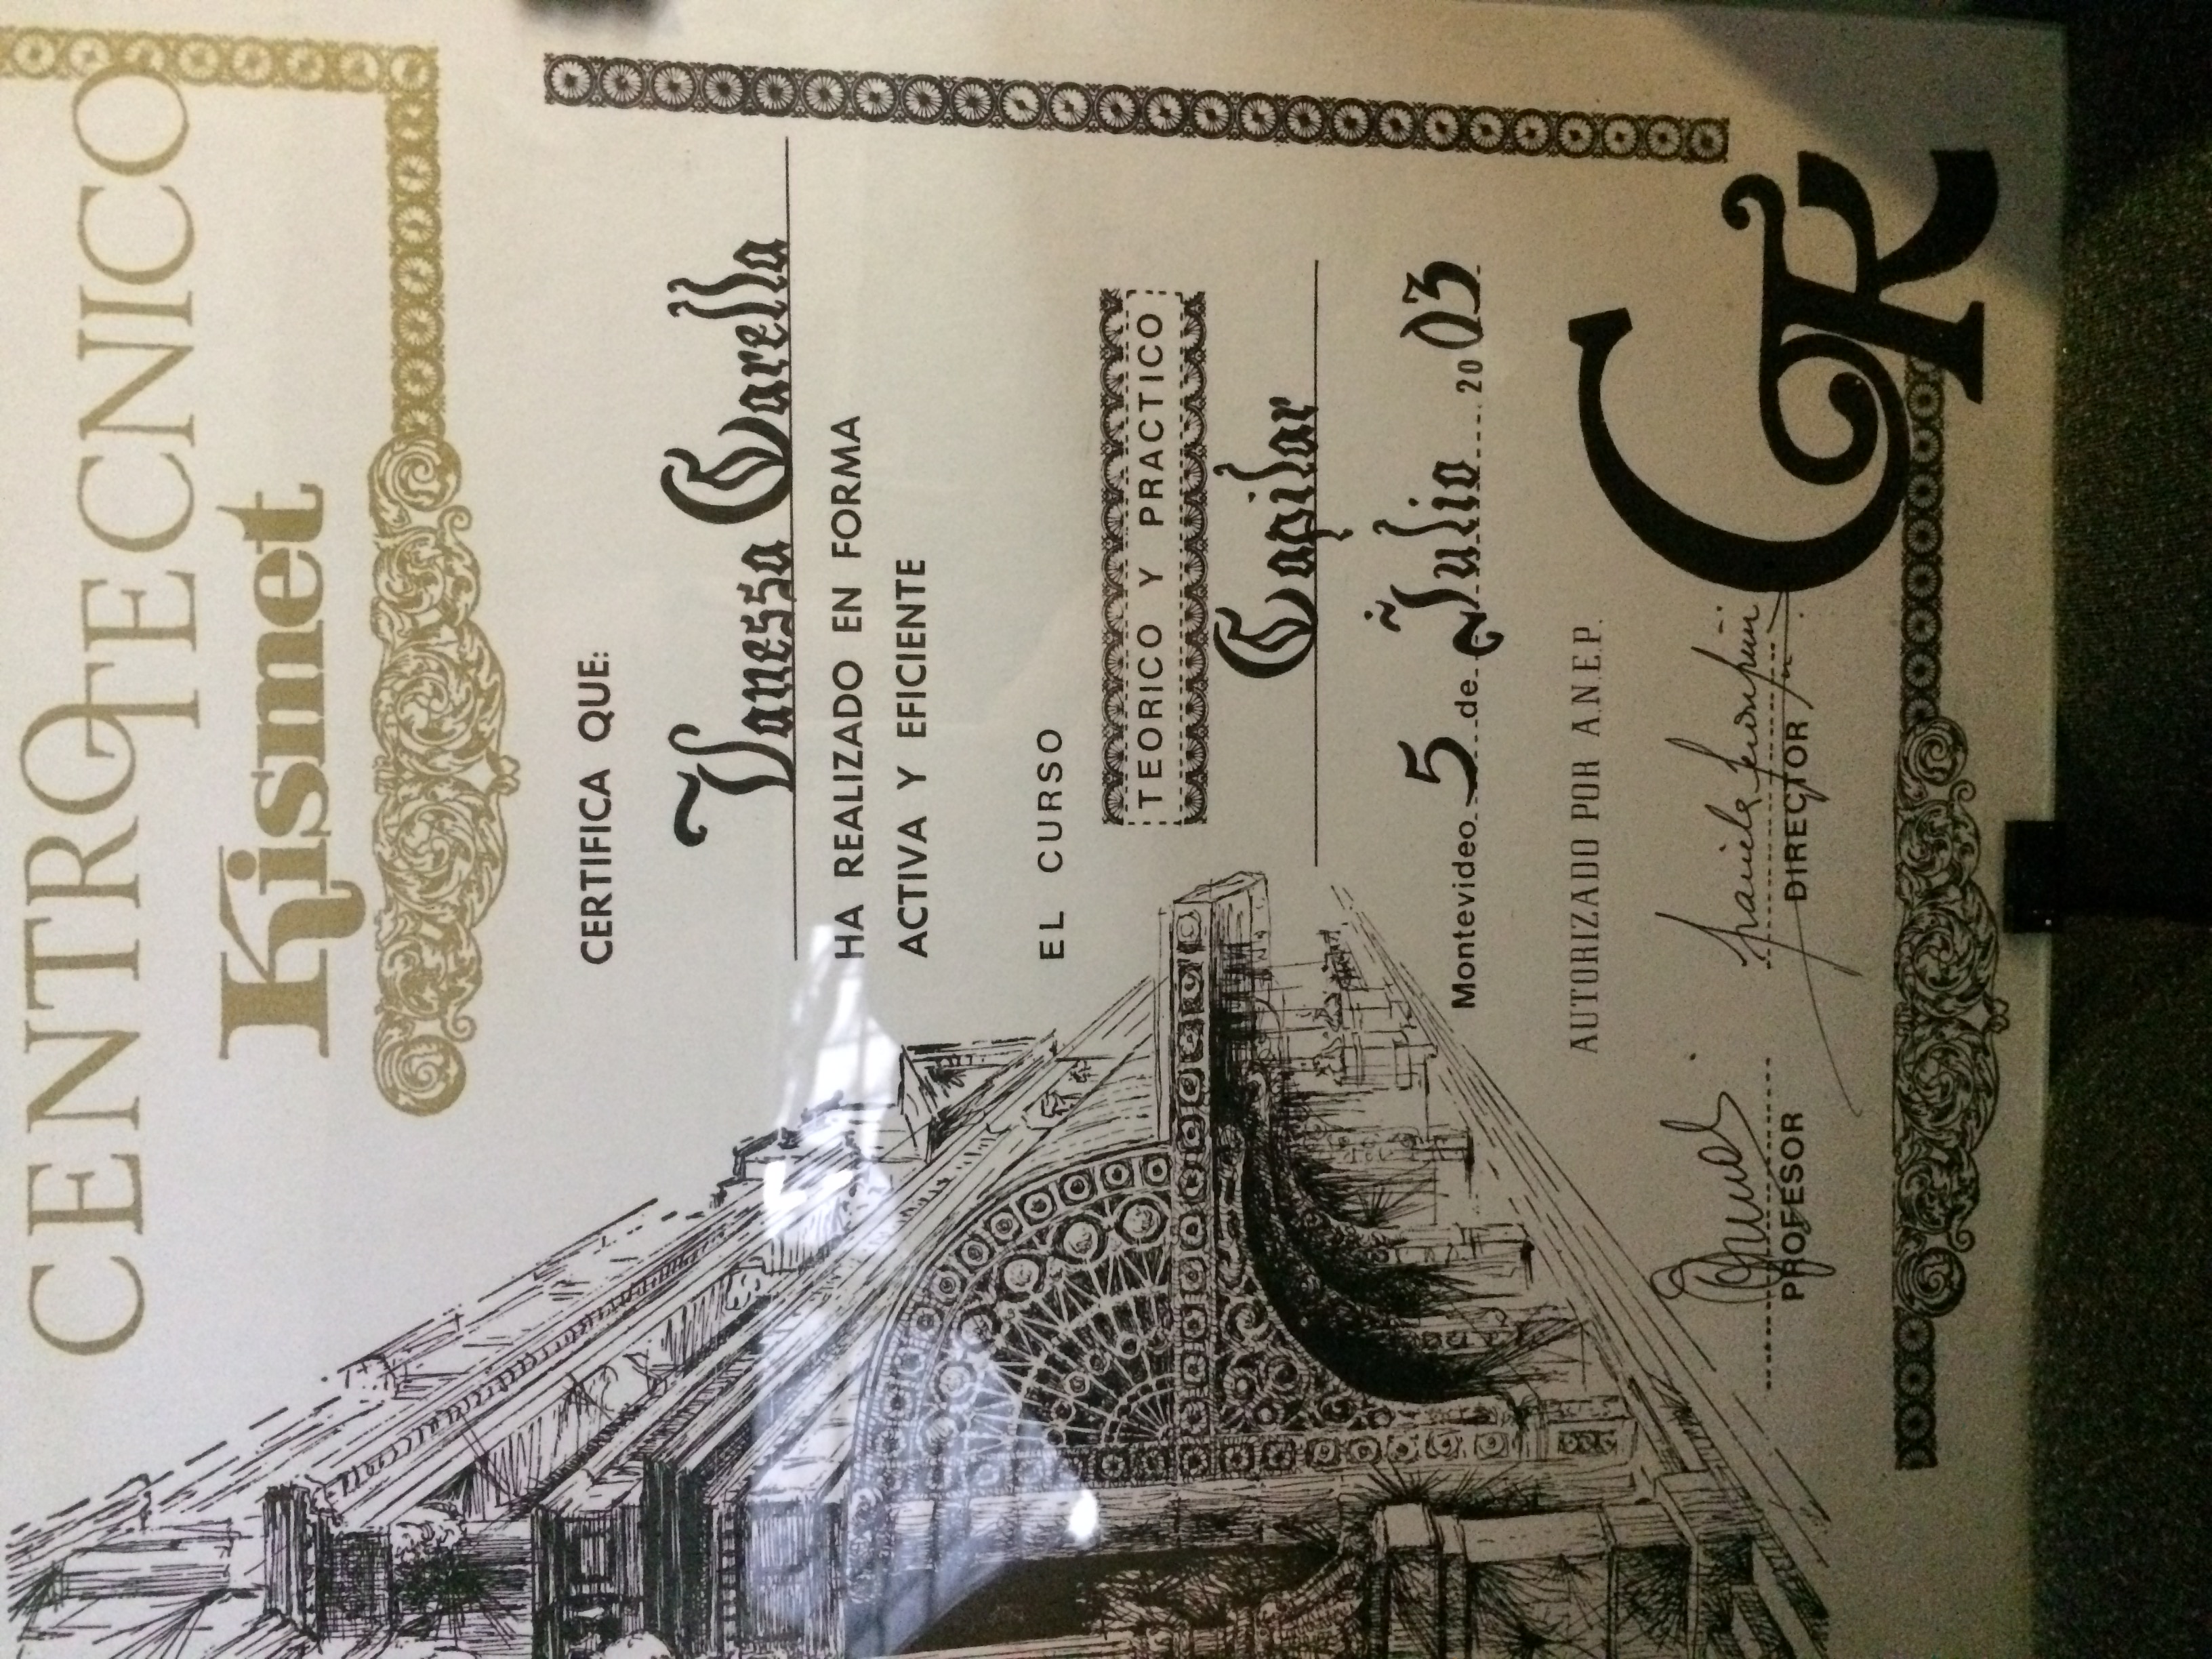 CENTRO TECNICO
Kismet
CERTIFICA QUE:
Vanessa Garella
HA REALIZADO EN FORMA
ACTIVA Y EFICIENTE
EL CURSO
TEORICO Y PRACTICO
Capilar
Montevideo 5 de Julio 2003
AUTORIZADO POR A.N.E.P.
PROFESOR DIRECTOR
CR